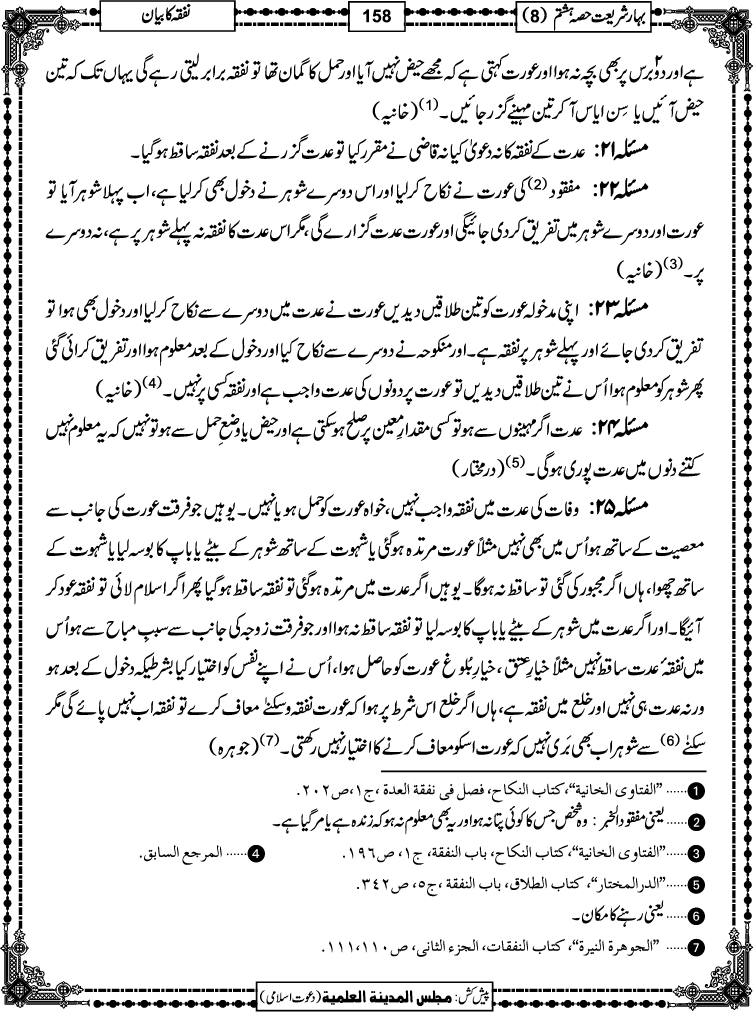 بہار شریعت حصہ ہشتم (8)
158
نفقہ کا بیان
ہے اور دو۲ برس پر بھی بچہ نہ ہوا اور عورت کہتی ہے کہ مجھے حیض نہیں آیا اور حمل کا گمان تھا تو نفقہ برابر لیتی رہے گی یہاں تک کہ تین
حیض آئیں یا سِن ایاس آ کر تین مہینے گزر جائیں۔(1) (خانیہ)
مسئلہ ۲۱: عدت کے نفقہ کا نہ دعویٰ کیا نہ قاضی نے مقرر کیا تو عدت گزرنے کے بعد نفقہ ساقط ہوگیا۔
مسئلہ ۲۲: مفقود (2) کی عورت نے نکاح کرلیا اور اس دوسرے شوہر نے دخول بھی کرلیا ہے، اب پہلا شوہر آیا تو
عورت اور دوسرے شوہر میں تفریق کردی جائیگی اور عورت عدت گزارے گی، مگر اس عدت کا نفقہ نہ پہلے شوہر پر ہے، نہ دوسرے
پر۔(3) (خانیہ)
مسئلہ ۲۳: اپنی مدخولہ عورت کو تین طلاقیں دیدیں عورت نے عدت میں دوسرے سے نکاح کرلیا اور دخول بھی ہوا تو
تفریق کردی جائے اور پہلے شوہر پر نفقہ ہے۔ اور منکوحہ نے دوسرے سے نکاح کیا اور دخول کے بعد معلوم ہوا اور تفریق کرائی گئی
پھر شوہر کو معلوم ہوا اُس نے تین طلاقیں دیدیں تو عورت پر دونوں کی عدت واجب ہے اور نفقہ کسی پر نہیں۔(4) (خانیہ)
مسئلہ ۲۴: عدت اگر مہینوں سے ہو تو کسی مقدارِ معین پر صلح ہوسکتی ہے اور حیض یا وضع حمل سے ہو تو نہیں کہ یہ معلوم نہیں
کتنے دنوں میں عدت پوری ہوگی۔(5) (درمختار)
مسئلہ ۲۵: وفات کی عدت میں نفقہ واجب نہیں، خواہ عورت کو حمل ہو یا نہیں۔ یوہیں جو فرقت عورت کی جانب سے
معصیت کے ساتھ ہو اُس میں بھی نہیں مثلاً عورت مرتدہ ہوگئی یا شہوت کے ساتھ شوہر کے بیٹے یا باپ کا بوسہ لیا یا شہوت کے
ساتھ چھوا، ہاں اگر مجبور کی گئی تو ساقط نہ ہوگا۔ یوہیں اگر عدت میں مرتدہ ہوگئی تو نفقہ ساقط ہوگیا پھر اگر اسلام لائی تو نفقہ عود کر
آئیگا۔ اور اگر عدت میں شوہر کے بیٹے یا باپ کا بوسہ لیا تو نفقہ ساقط نہ ہوا اور جو فرقت زوجہ کی جانب سے سببِ مباح سے ہو اُس
میں نفقۂ عدت ساقط نہیں مثلاً خیارِ عتق، خیارِ بُلوغ عورت کو حاصل ہوا، اُس نے اپنے نفس کو اختیار کیا بشرطیکہ دخول کے بعد ہو
ورنہ عدت ہی نہیں اور خلع میں نفقہ ہے، ہاں اگر خلع اس شرط پر ہوا کہ عورت نفقہ و سکنےٰ معاف کرے تو نفقہ اب نہیں پائے گی مگر
سکنےٰ (6) سے شوہر اب بھی بَری نہیں کہ عورت اسکو معاف کرنے کا اختیار نہیں رکھتی۔(7) (جوہرہ)
1 ......"الفتاوی الخانیة"، کتاب النکاح، فصل فی نفقة العدة، ج۱، ص۲۰۲.
2 ...... یعنی مفقود الخبر: وہ شخص جس کا کوئی پتا نہ ہو اور یہ بھی معلوم نہ ہو کہ زندہ ہے یا مر گیا ہے۔
3 ......"الفتاوی الخانیة"، کتاب النکاح، باب النفقة، ج۱، ص۱۹٦. 4 ...... المرجع السابق.
5 ......"الدرالمختار"، کتاب الطلاق، باب النفقة، ج۵، ص۳٤۲.
6 ...... یعنی رہنے کا مکان۔
7 ......"الجوهرة النیرة"، کتاب النفقات، الجزء الثانی، ص۱۱۱،۱۱۰.
پیش کش: مجلس المدینة العلمیة (دعوت اسلامی)